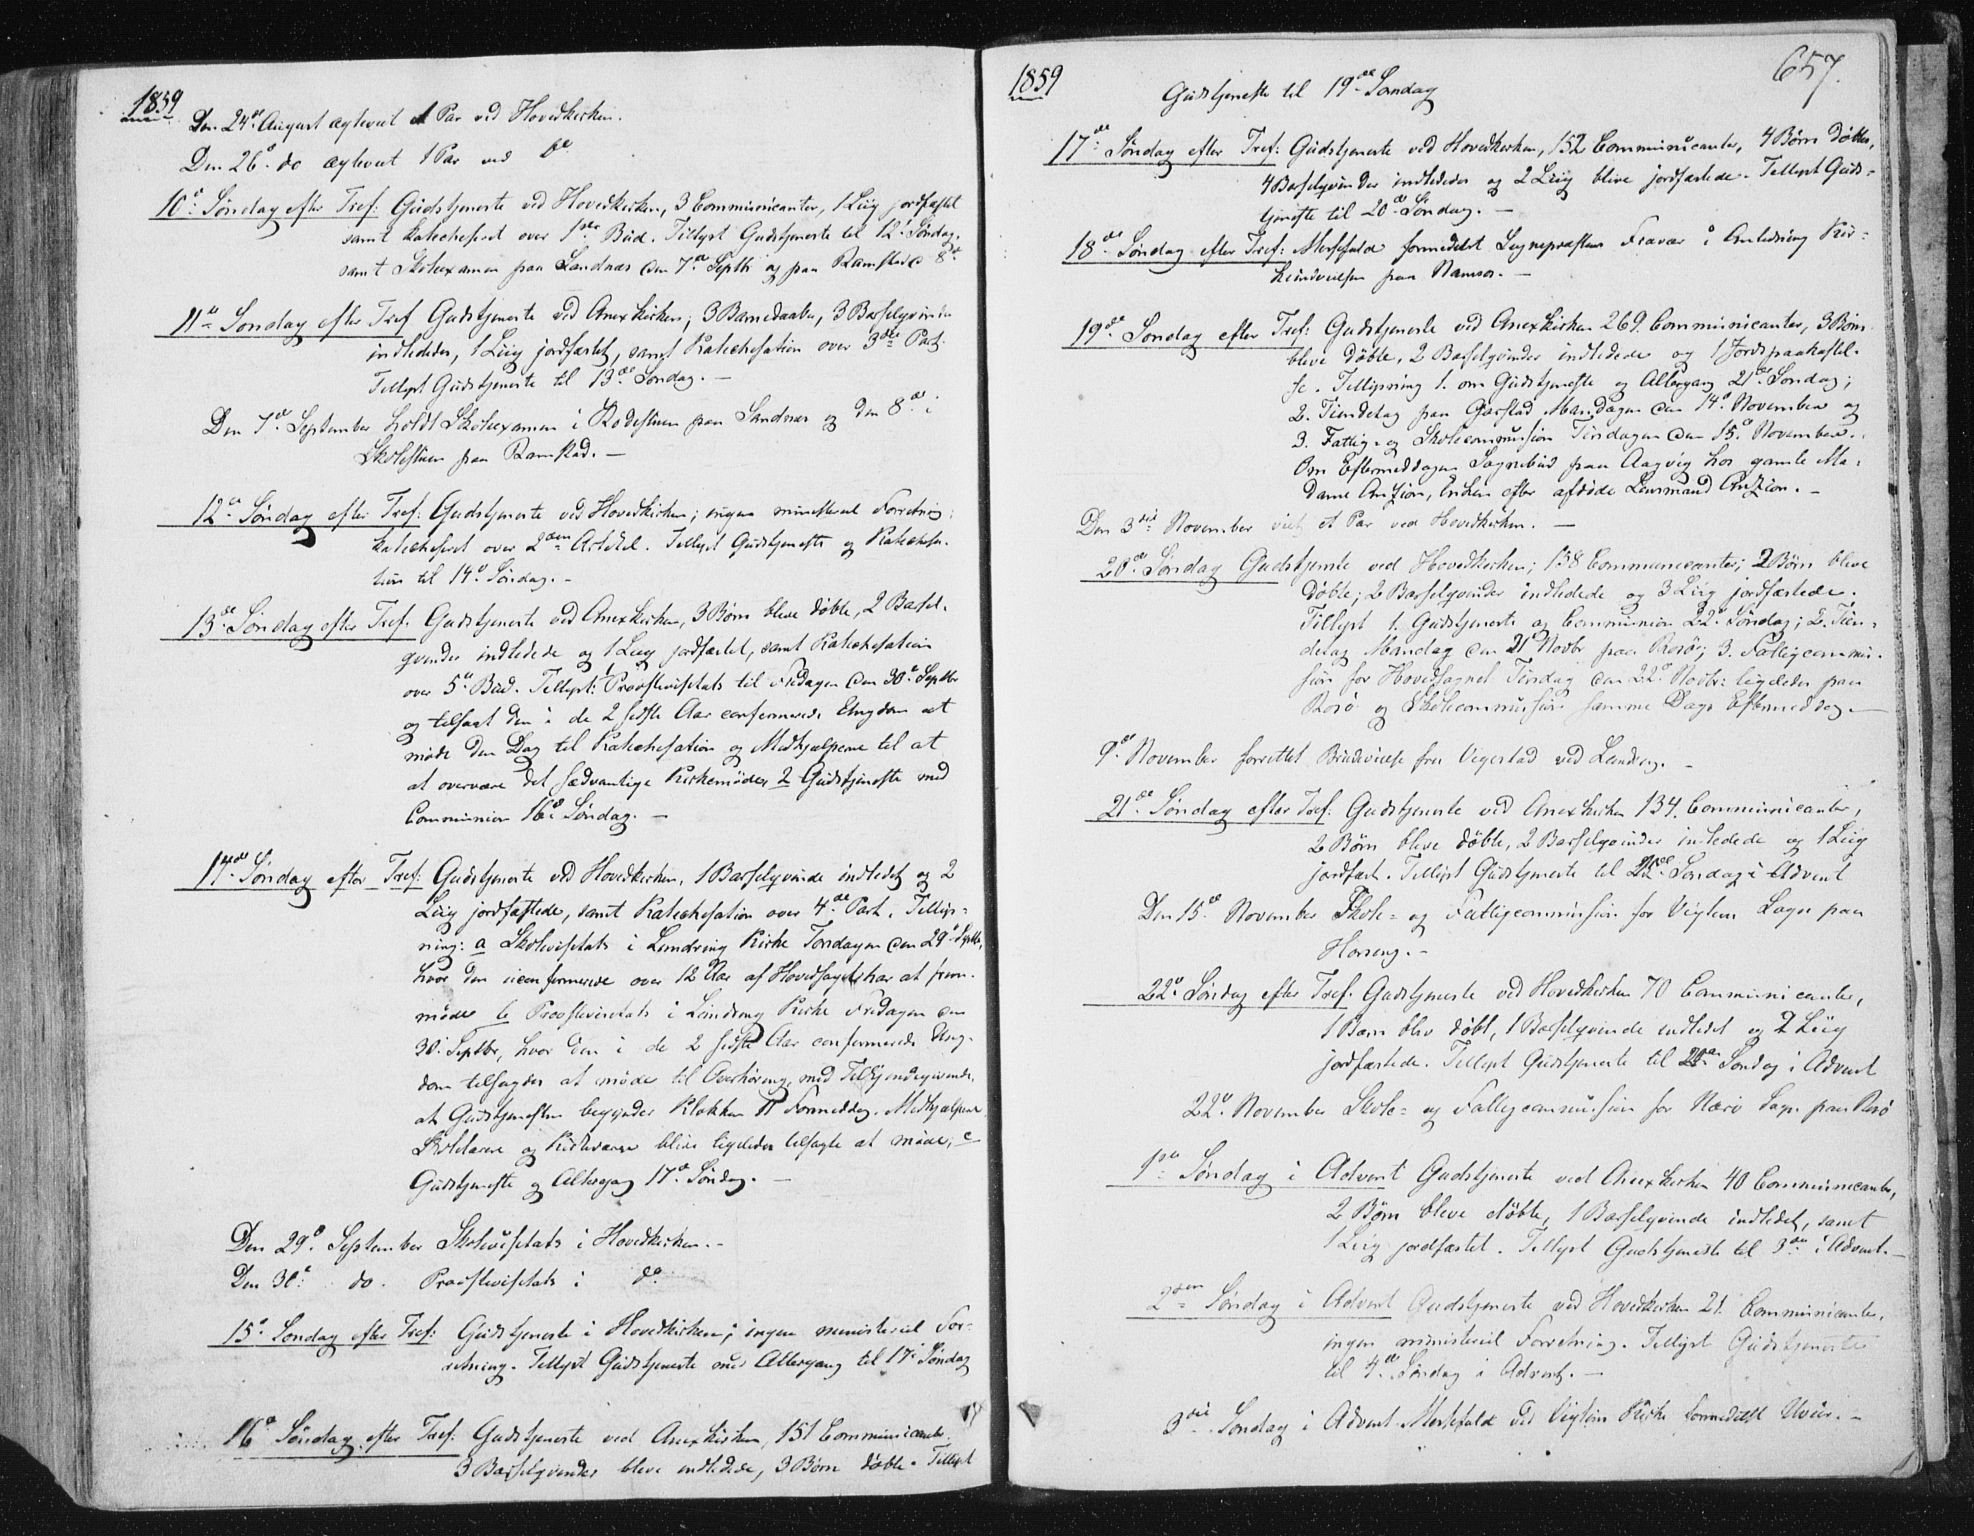 1859
Den 24de August ægteviet 1 Par ved Hovedkirken.
Den 26de do ægteviet 1 Par ved do
10de Søndag efter Tref: Gudstjeneste ved Hovedkirken, 3 Communicanter, 1 Liig jordfæstet
samt katechiseret over 1ste Bud. Tillyst Gudstjeneste til 12te Søndag.
samt Skoleexamen paa Sandnæs den 7de Septbr og paa Ramstad d 8de
11te Søndag efter Tref Gudstjeneste ved Anexkirken; 3 Barnedaaber, 3 Barselqvinder
indlededes, 1 Liig jordfæstet, samt Katechisation over 3die Part.
Tillyst Gudstjeneste til 13de Søndag. —
Den 7de September holdt Skoleexamen i Rodestuen paa Sandnæs og den 8de i
Skolestuen paa Ramstad. —
12te Søndag efter Tref: Gudstjeneste ved Hovedkirken; ingen ministeriel Forretning
katechiseret over 2den Artikel. Tillyst Gudstjeneste og Katechisa-
tion til 14de Søndag. -
13de Søndag efter Tref. Gudstjeneste ved Anexkirken, 3 Børn bleve døbte, 2 Barsel-
qvinder indledede og 1 Liig jordfæstet, samt Katechisation
over 5te Bud. Tillyst: Provstevisitats til Fredagen den 30te Septbr
og tilsagt den i de 2 sidste Aar confirmerede Ungdom at
møde den Dag til Katechisation og Medhjælperne til at
at overvære det sædvanlige Kirkemøde; 2 Gudstjeneste med
Communion 16de Søndag. —
14de Søndag efter Tref: Gudstjeneste ved Hovedkirken, 1 Barselqvinde indledet og 2
Liig jordfæstede, samt Katechisation over 4de Part. Tillys-
ning: a Skolevisitats i Lundring Kirke Torsdagen den 29de Septbr,
hvor den uconfirmerede over 12 Aar af Hovedsognet har at frem-
møde b Provstevisitats i Lundring Kirke Fredagen den
30te Septbr, hvor den i de 2 sidste Aar confirmerede Ung-
dom tilsagdes at møde til Overhøring, med Tilkjendegivende,
at Gudstjenesten begynder Klokken 11 Formiddag. Medhjælpere
Skolelærere og Kirkeværger blive ligeledes tilsagte at møde; c
Gudstjeneste og Altergang 17de Søndag. —
Den 29de September Skolevisitats i Hovedkirken. -
Den 30te do. Provstevisitats i do
15de Søndag efter Tref: Gudstjeneste i Hovedkirken; ingen ministeriel For-
retning. Tillyst Gudstjeneste med Altergang til 17de Søndag
16de Søndag efter Tref: Gudstjeneste ved Anexkirken, 151 Communicanter
3 Barselqvinder bleve indledede, 3 Børn døbte. Tillyst
1859
657.
Gudstjeneste til 19de Søndag
17de Søndag efter Tref: Gudstjeneste ved Hovedkirken, 152 Communicanter, 4 Børn døbtes,
4 Barselqvinder indlededes og 2 Liig bleve jordfæstede. Tillyst Guds-
tjeneste til 20de Søndag. —
18de Søndag efter Tref: Messefald formedelst Sognepræstens Fravær i Anledning Kir-
keindvielsen paa Namsos. —
19de Søndag efter Tref: Gudstjeneste ved Anexkirken 269 Communicanter, 3 Børn
bleve døbte, 2 Barselqvinder indledede og 1 Jordspaakastel-
se. Tillysning 1. om Gudstjeneste og Altergang 21de Søndag;
2. Tiendetag paa Garstad Mandagen den 14de November og
3. Fattig- og Skolecommission Tirsdagen den 15de November.
Om Eftermiddagen Sognebud paa Aagvig hos gamle Ma-
dame Anzion, Enken efter afdøde Lensmand Anzion. -
Den 3die November viet et Par ved Hovedkirken. —
20de Søndag Gudstjeneste ved Hovedkirken; 138 Communicanter; 2 Børn bleve
døbte; 2 Barselqvinder indledede og 3 Liig jordfæstede.
Tillyst 1. Gudstjeneste og Communion 22de Søndag; 2. Tien-
detag Mandag den 21de Novbr paa Rosø; 3. Fattigcommis-
sion for Hovedsognet Tirsdag den 22de Novbr: ligeledes paa
Rosø og Skolecommission samme Dags Eftermiddag. —
9de November forrettet Brudevielse fra Vigestad ved Landreg. -
21de Søndag efter Tref. Gudstjeneste ved Anexkirken 134 Communicanter,
2 Børn bleve døbte, 2 Barselqvinder indledede og 1 Liig
jordfæst. Tillyst Gudstjeneste til Søndag i Advent
Den 15de November Skole- og Fattigcommission for Vigten Sogn paa
Horseng. -
22de Søndag efter Tref. Gudstjeneste ved Hovedkirken 70 Communicanter,
1 Barn blev døbt, 1 Barselqvinde indledet og 2 Liig
jordfæstede. Tillyst Gudstjeneste til 2den Søndag i Advent
22de November Skole- og Fattigcommission for Nærø Sogn paa Rosø
1ste Søndag i Advent Gudstjeneste ved Anexkirken 40 Communicanter,
2 Børn bleve døbte, 1 Barselqvinde indledet, samt
1 Liig jordfæstet. Tillyst Gudstjeneste til 3die i Advent. —
2den Søndag i Advent Gudstjeneste ved Hovedkirken 21 Communicanter,
ingen ministeriel Forretning. Tillyst Gudstjeneste
til 4de Søndag i Advent. —
3die Søndag i Advent Messefald ved Vigten Kirke formedelst Uveir. —